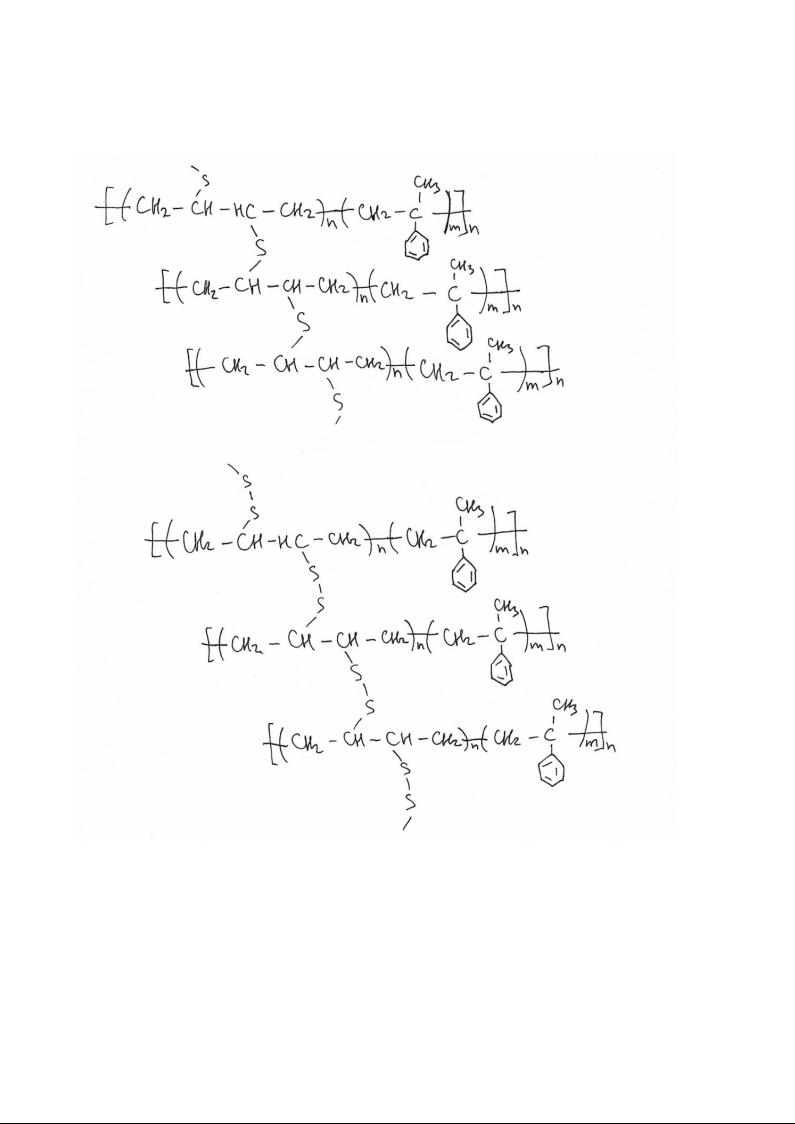 S
CH3
[(CH2-CH-HC-CH2)n(CH2-C)m]n
S
CH3
[(CH2-CH-CH-CH2)n(CH2-C)m]n
S
CH3
[(CH2-CH-CH-CH2)n(CH2-C)m]n
S
S
S
CH3
[(CH2-CH-HC-CH2)n(CH2-C)m]n
S
S
CH3
[(CH2-CH-CH-CH2)n(CH2-C)m]n
S
S
CH3
[(CH2-CH-CH-CH2)n(CH2-C)m]n
S
S